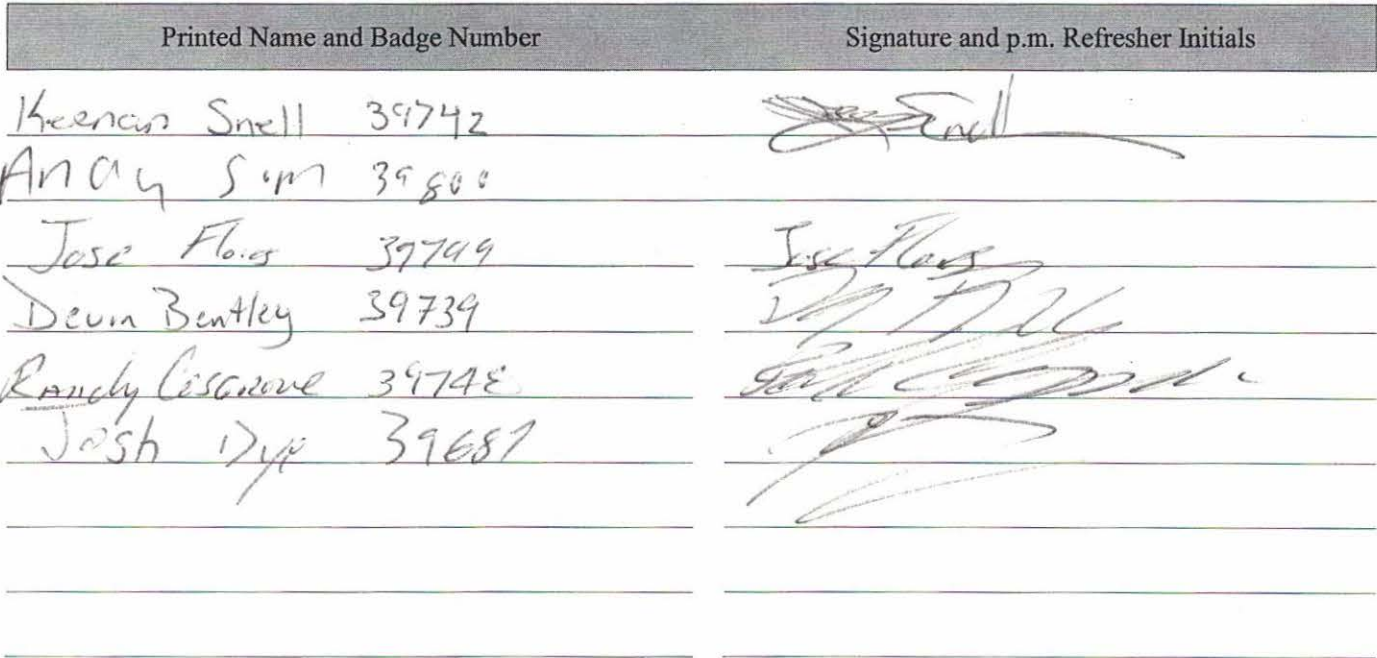 Printed Name and Badge Number Signature and p.m. Refresher Initials
Keenan Snell 39742 Snell
Andy Sim 39800
Jose Flores 39799 Jose Flores
Devin Bentley 39739
Randy Cosgrove 39748
Josh Dye 39687